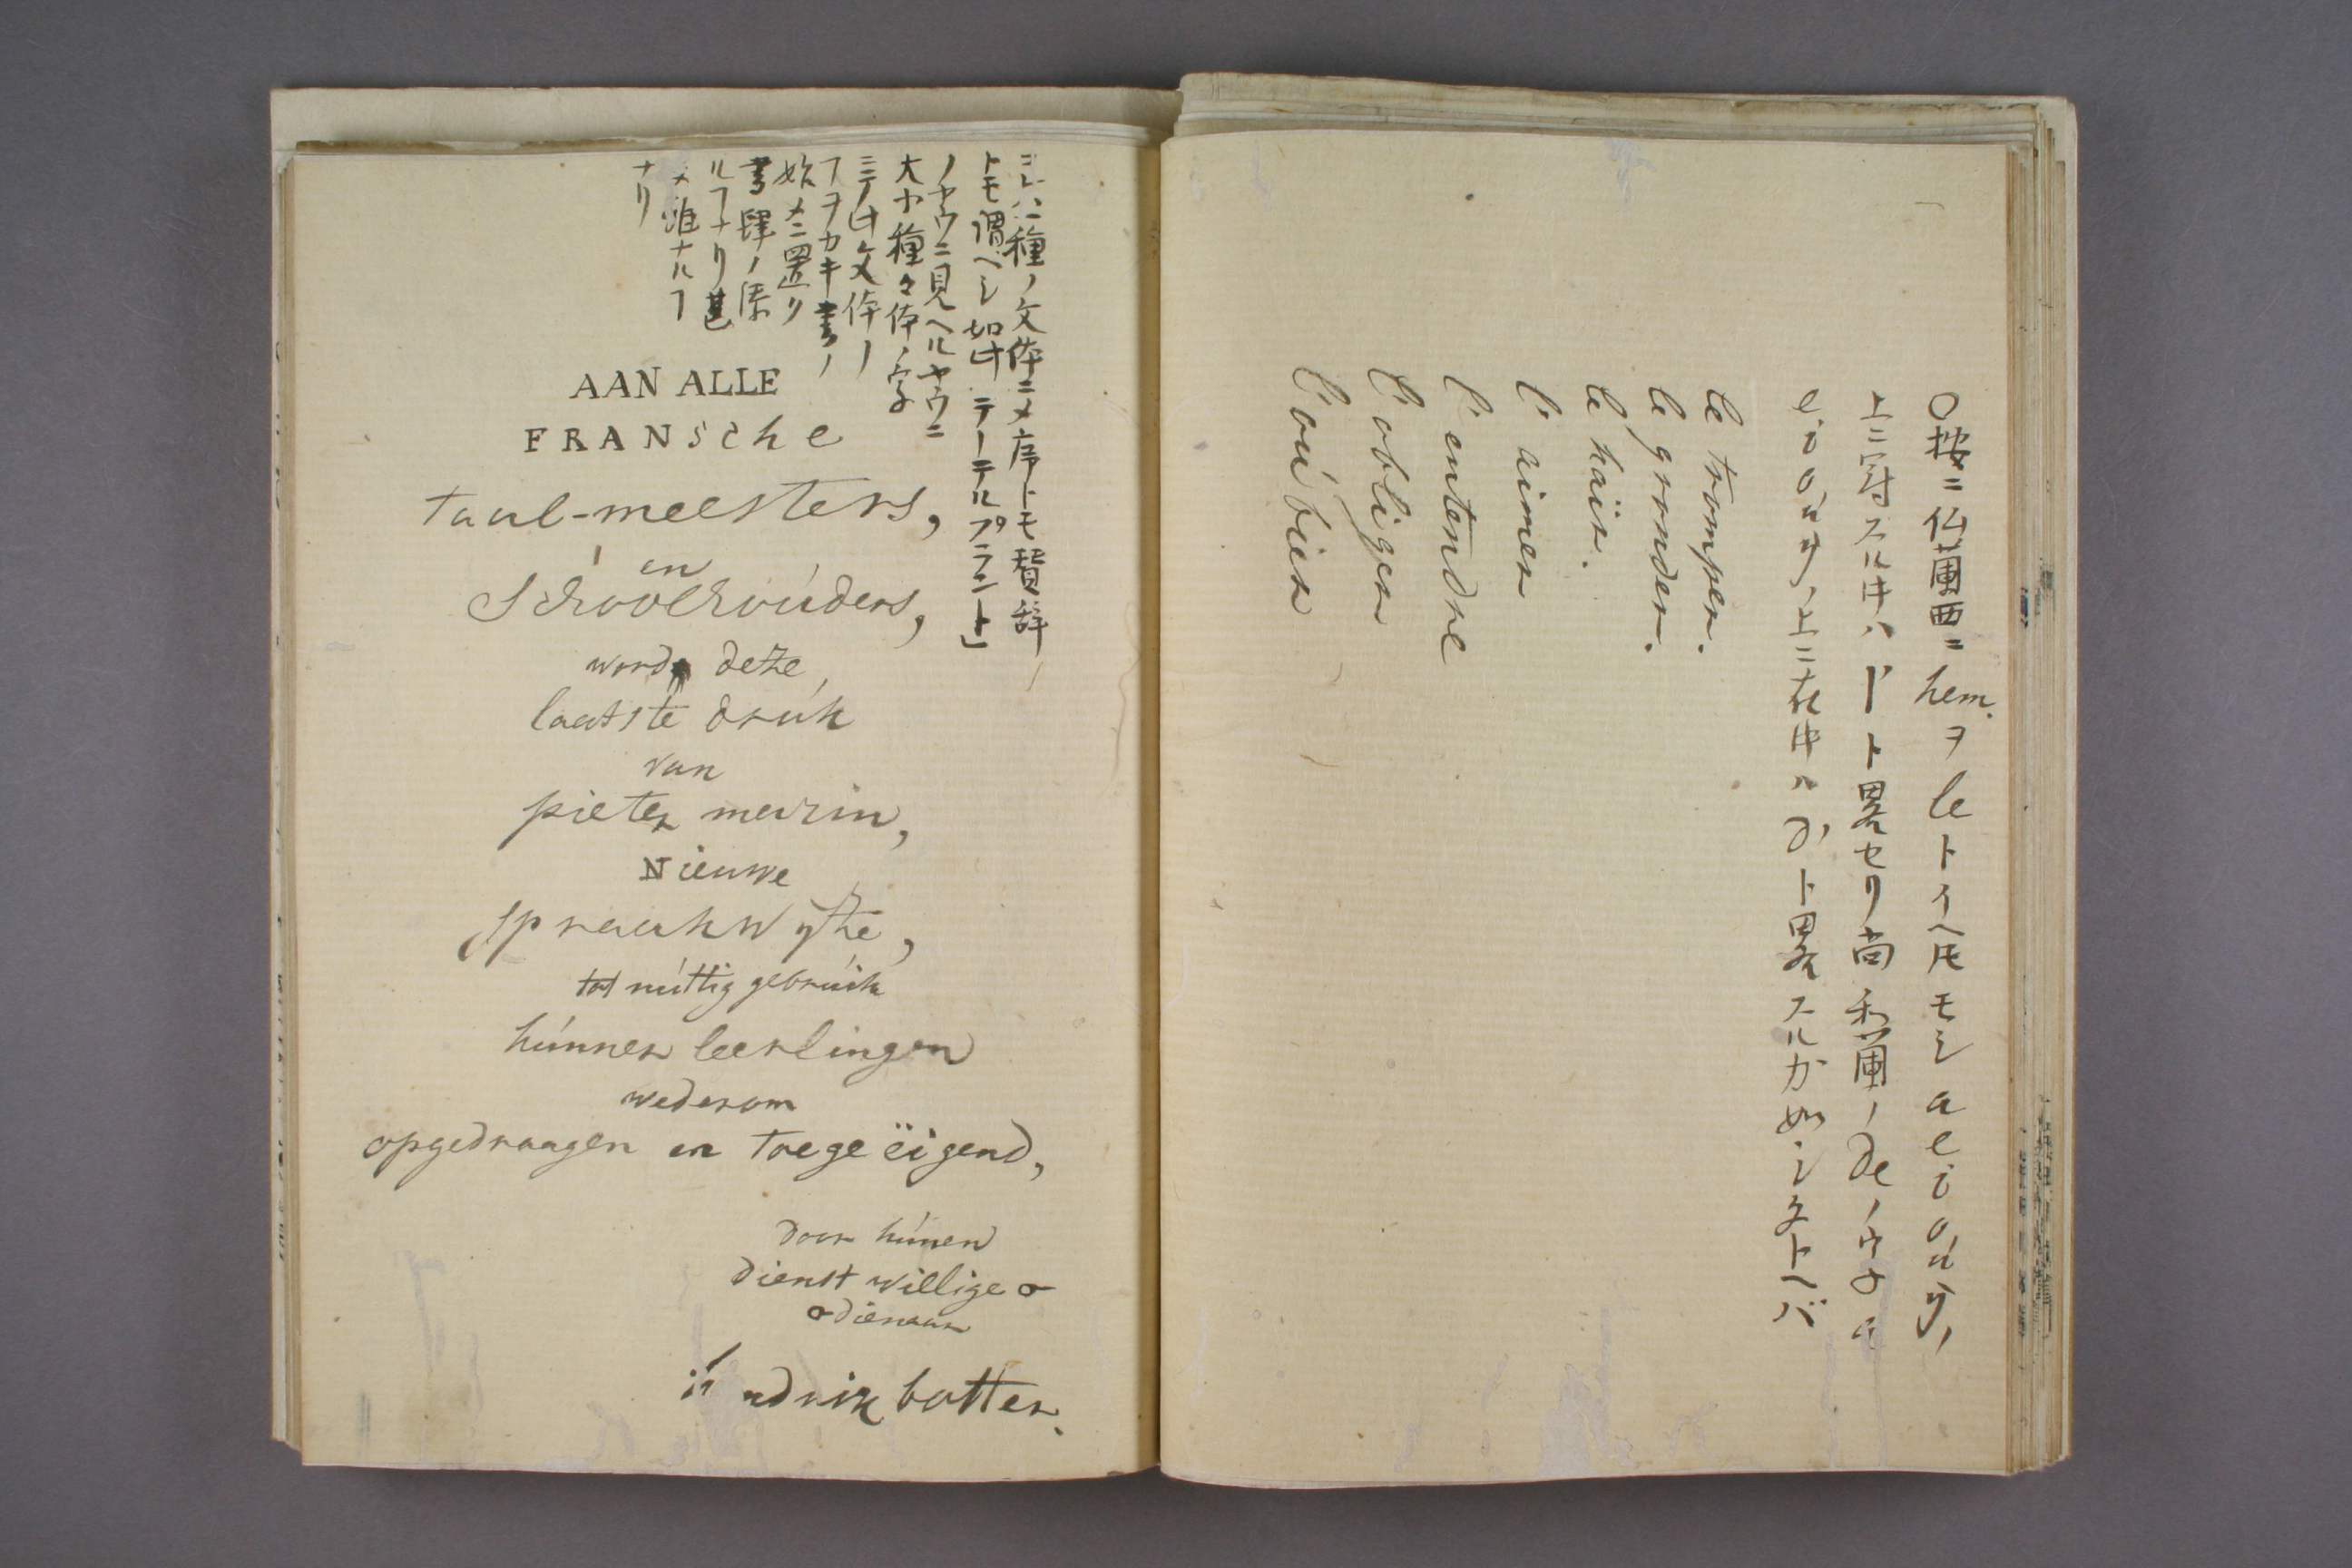 〇按ニ仏蘭西ニ hem. ヲ le トイヘ𪜈 モシ a e i o ú ij,
上ニ冠スル𪜈ハ l' ト畧セリ尚和蘭ノ de ノウチ a
e i o ú ij, 上ニ在𪜈ハ d' ト畧スルカ如シタトヘバ
le tromper.
le gronder.
le haïr.
l' aimer
l' entendre
l' obliger
l' oúbier
コレハ一種ノ文体ニメ序トモ賛辞
トモ謂ベシ如此テーテルプラント」
ノヤウニ見ヘルヤウニ
大ヤ種々体ノ字
ニテ此文体ノ
ヿヲカキ書ノ
始メニ置リ
書肆ノ
ルヿナリ甚
タ難ナルヿ
ナリ
AAN ALLE
FRANSche
taal-meesters,
en
Schoolhoúders,
word deze
laatste drúk
van
pieter marin,
Nieuwe
spraakwijze,
tot núttig gebrúik
húnner leerlingen
wederom
opgedraagen en toegeëigend,
door húnen
dienst willige
dienaar
ndrik botter.